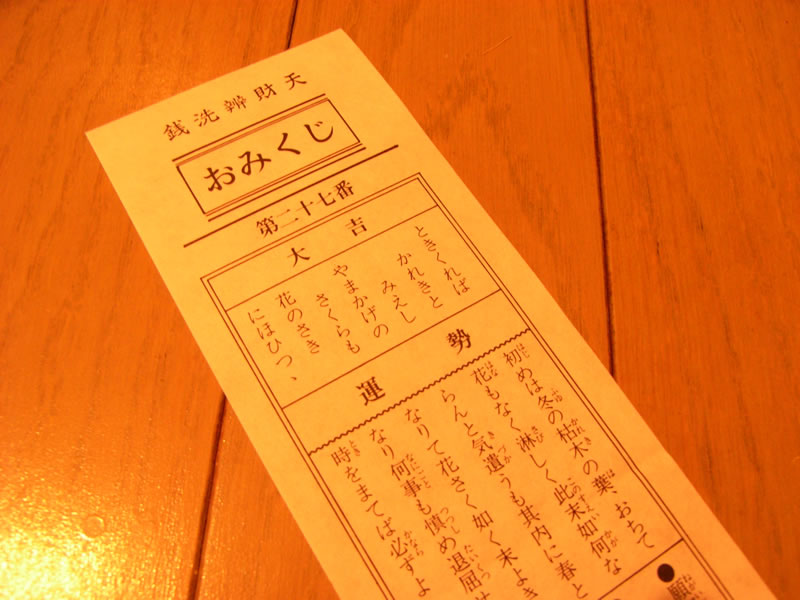 銭洗辨財天
おみくじ
第二十七番
大吉
ときくれば
かれきと
みえし
やまかげの
さくらも
花のさき
にほひつゝ
運勢
初めは冬の枯木の葉、おちて
花もなく淋しく此末如何な
らんと気遣うも其内に春と
なりて花さく如く末よき
なり何事も慎め退屈せ
時をまてば必ずよ
●願